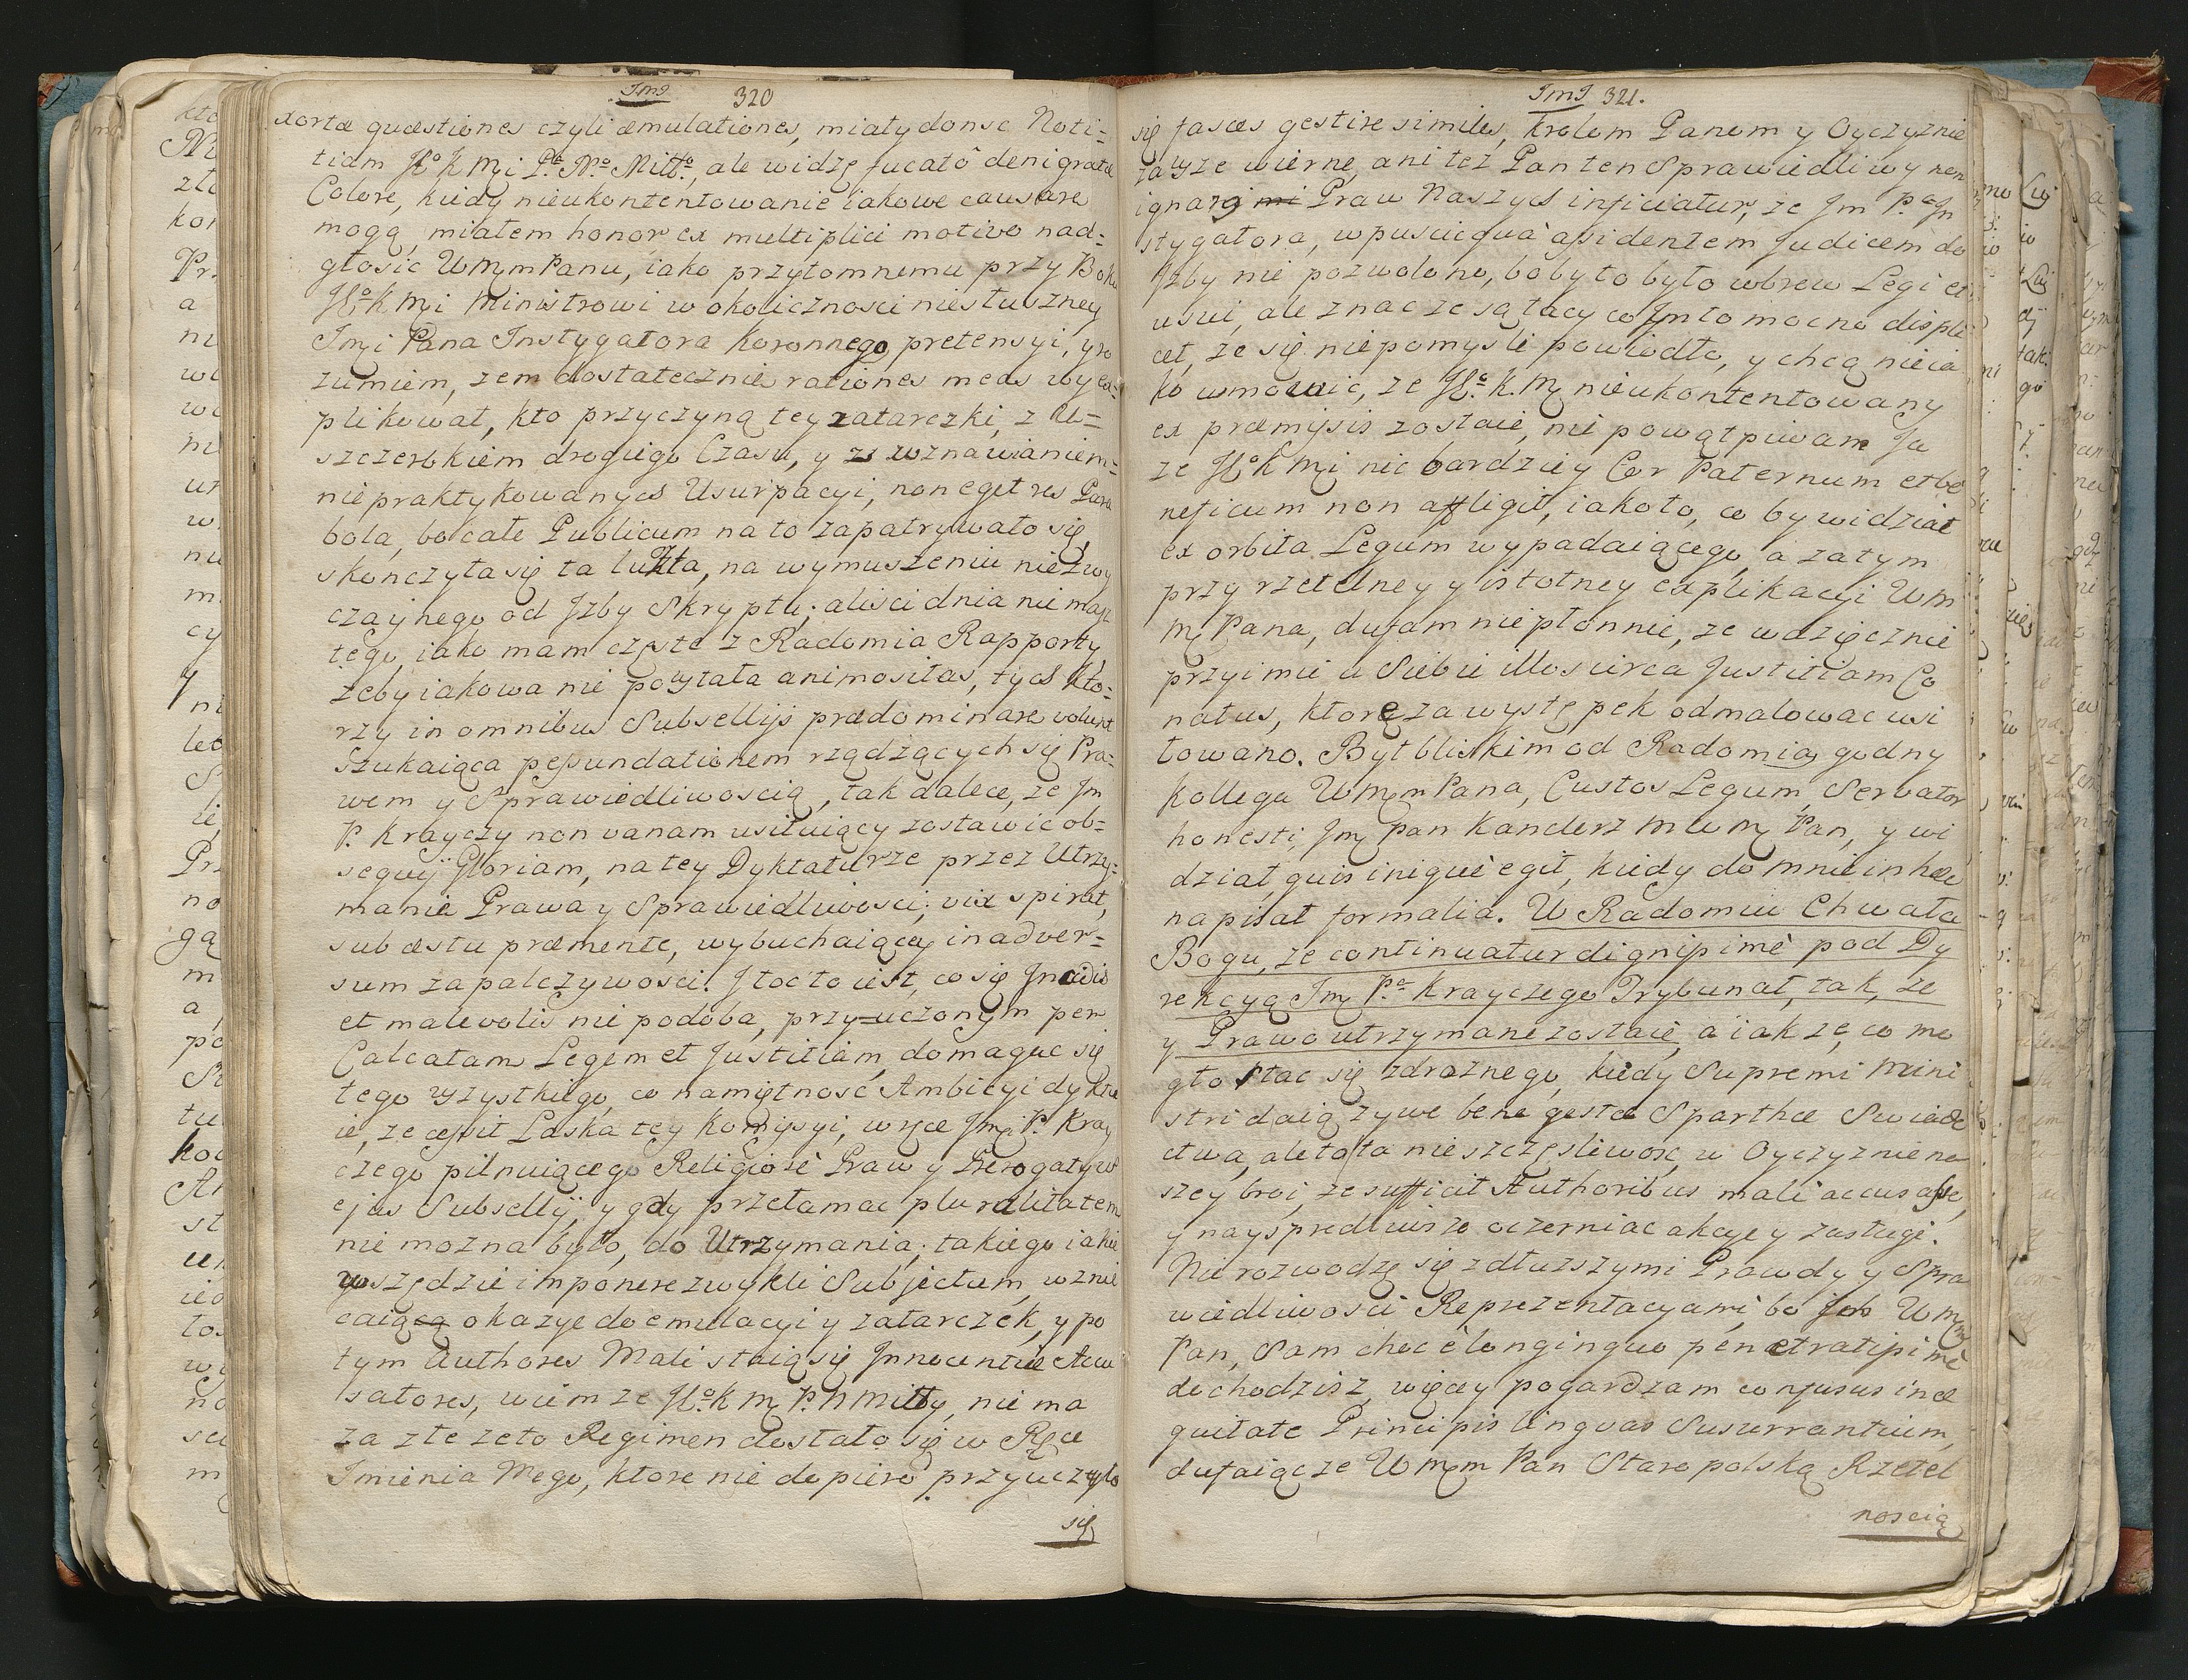 JmJ 320
xortæ quæstiones czyli æmulationes, miały donsc Noti=
tiam JKoK Mći Pa No Mitto, ale widzę fucato denigratæ
Colore, kiedy nieukontentowanie iakowe causare
mogą, miałem honor ex multiplici motivo nad=
głosic WMym Panu, iako przytomnemu przy Boku
JKoK Mći Ministrowi w okolicznosci niesłuszney
Jmći Pana Instygatora Koronnego pretensyi, y ro
zumiem, zem dostatecznie rationes meas wyex=
plikował, kto przyczyną tey zatarczki, z U=
szczerbkiem drogiego Czasu, y z wznawianiem=
niepraktykowanych Usurpacyi, non eget res Para
bola, bo całe Publicum na to zapatrywało się,
skonczyła się ta lukta, na wymuszeniu niezwy
czaynego od Jzby Skryptu; alisci dnia nie masz
tego, iako mam częste z Radomia Rapporty,
zeby iakowa nie powstała animositas, tych kto=
rzy in omnibus Subsellijs prædominare volunt
Szukaiąca pessundationem rządzących się Pra=
wem y Sprawiedliwoscią, tak dalece, ze Jm
P. Krayczy non vanam usiłuiący zostawic ob=
sequij Gloriam, na tey Dyktaturze przez Utrzy=
manie Prawa y Sprawiedliwosci; vix spirat,
sub æstu præmente, wybuchaiącey in adver=
sum zapalczywosci. J toc to iest, co się Jnvidis
et malevolis nie podoba, przyuczonym per
Calcatam Legem et Justitiam, domagac się
tego wszystkiego, co namiętność Ambicyi dyktu
ie, ze cessit Laska tey Kommissyi, w ręce Jmći P. Kray
czego pilnuiącego Religiose Praw y Prerogatyw
ejus Subsellij, y gdy przełamac pluralitatem
nie mozna było, do Utrzymania; takiego iakie
wszędzie imponere zwykli Subjectum, wznie
caią okazye do emulacyi y zatarczek, y po
tym Authores Mali staią się Jnnocentiæ Accu
satores, wiem ze JKoK M P. N Mitty, nie ma
za złe ze to Regimen dostało się w Ręce
Jmienia Mego, ktore nie dopiero przyuczyło
się
JmJ 321.
się fasces gestire similes, Krolom Panom y Oyczyznie
zawsze wierne, ani tez Pan ten Sprawiedliwy non
ignarg Praw Naszych inficiatur, ze Jm Pa Jn
stygatora, wpuscic quà assidentem Judicem do
Jzby nie pozwolono, bo by to było wbrew Legi et
usui, ale znac ze są tacy co Jm to mocno displi
cet, ze się niepomysli powiodło, y chcą nieia
ko wmowic, ze JKo K. M nieukontentowany
ex præmissis zostaie, nie powątpiwam Ja
ze JKoK Mći nic bardziey Cor Paternum et be
neficum non affligit, iako to, co by widział
ex orbita Legum wypadaiącego, a zatym
przy rzetelney y istotney explikacyi WM
M Pana, dufam niepłonnie, ze wdzięcznie
przyimie u Siebie illos circa Justitiam Co
natus, ktorę za występek odmalowac usi
łowano. Był bliskim od Radomia godny
Kollega WMym Pana, Custos Legum, Servator
honesti, Jmć Pan Kanclerz M W M Pan, y wi
dział, quis iniquè egit, kiedy do mnie in hæc
napisał formalia. W Radomiu Chwała
Bogu, ze continuatur dignissimè pod Dy
rekcyą Jmć Pa Krayczego Trybunał, tak, ze
y Prawo utrzymane zostaie, a iak ze, co mo
gło stac się zdroznego, kiedy Supremi Mini
stri daią zywe bene gestæ Sparthæ Swiade
ctwa, ale to ta nieszczęsliwosc w Oyczyznie na
szey broi, ze sufficit Authoribus mali accusasse,
y nayspredliwsze oczerniac akcye y zasługi.
Nie rozwodzę się zdłuzszymi Prawdy y Spra
wiedliwosci Reprezentacyami, bo WMym
Pan, Sam choc è longinquo penetratissimè
dochodzisz, więcy pogardzam confusus in æ
quitate Principis linguas Susurrantium,
dufaiąc ze WMym Pan Staropolską Rzetel
noscią